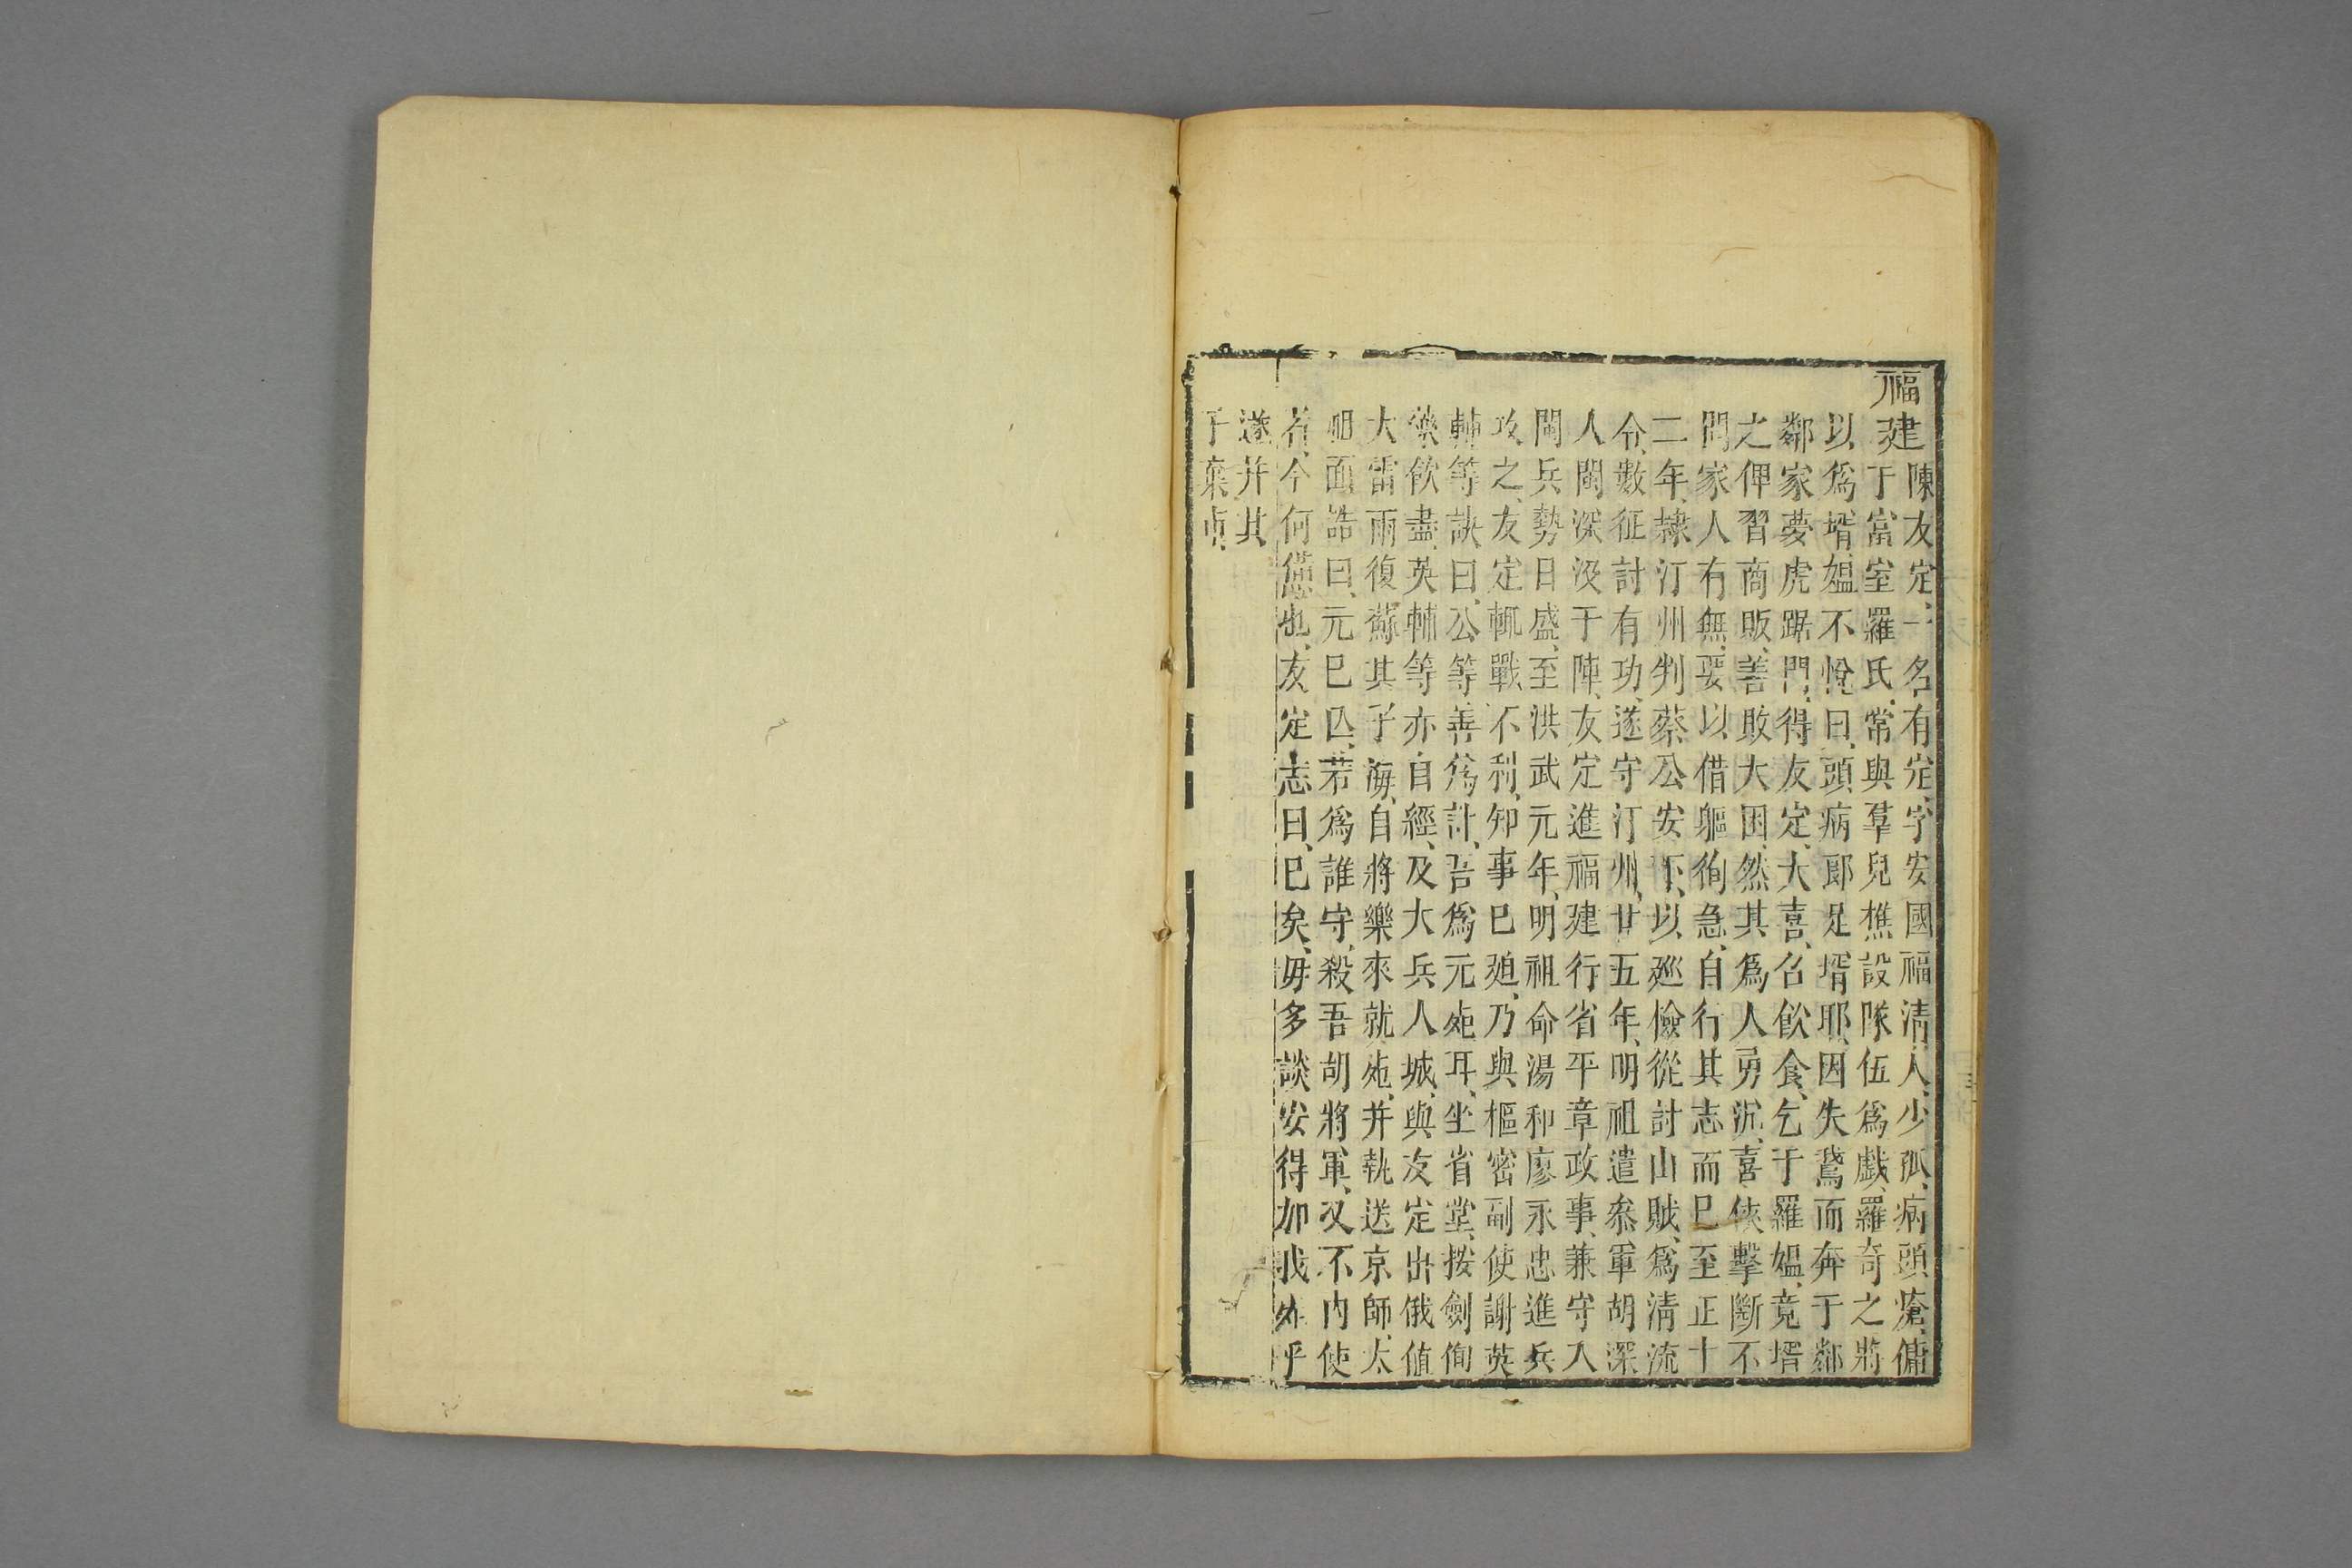 福建
陳友定、一名有定、字安國福清人、少孤、病頭瘡、傭
于富室羅氏、常與羣兒樵設隊伍爲戲、羅奇之將
以爲壻、媪不悅曰、頭病郎是壻耶、因失鵞而奔于鄰
鄰家夢虎踞門、得友定、大喜、召飲食、乞于羅媪、竟壻
之俾習商販、善敗大困、然其爲人勇沉、喜俠擊斷不
問家人有無、要以借軀徇急、自行其志而巳至正十
二年、隷汀州判蔡公安下、以廵儉從討山賊、爲清流
令、數征討有功、遂守汀州、廿五年、明祖遣叅軍胡深
人閩深没于陣、友定進福建行省平章政事、兼守入
閩兵勢日盛、至洪武元年、明祖命湯和廖永忠進兵
攻之、友定輒戰不利、知事巳廹、乃與樞密副使謝英
輔等訣曰、公等善爲計、吾爲元死耳、坐省堂、按劍仰
藥飲盡、英輔等亦自經、及大兵人城、與友定出俄值
大雷雨復蘇其子海、自將樂來就死、并執送京師、太
祖面詰曰、元巳亾、若爲誰守、殺吾胡將軍、又不內使
者、今何憊也、友定志曰、巳矣、毋多談安得加我外乎
遂并其
子棄市、